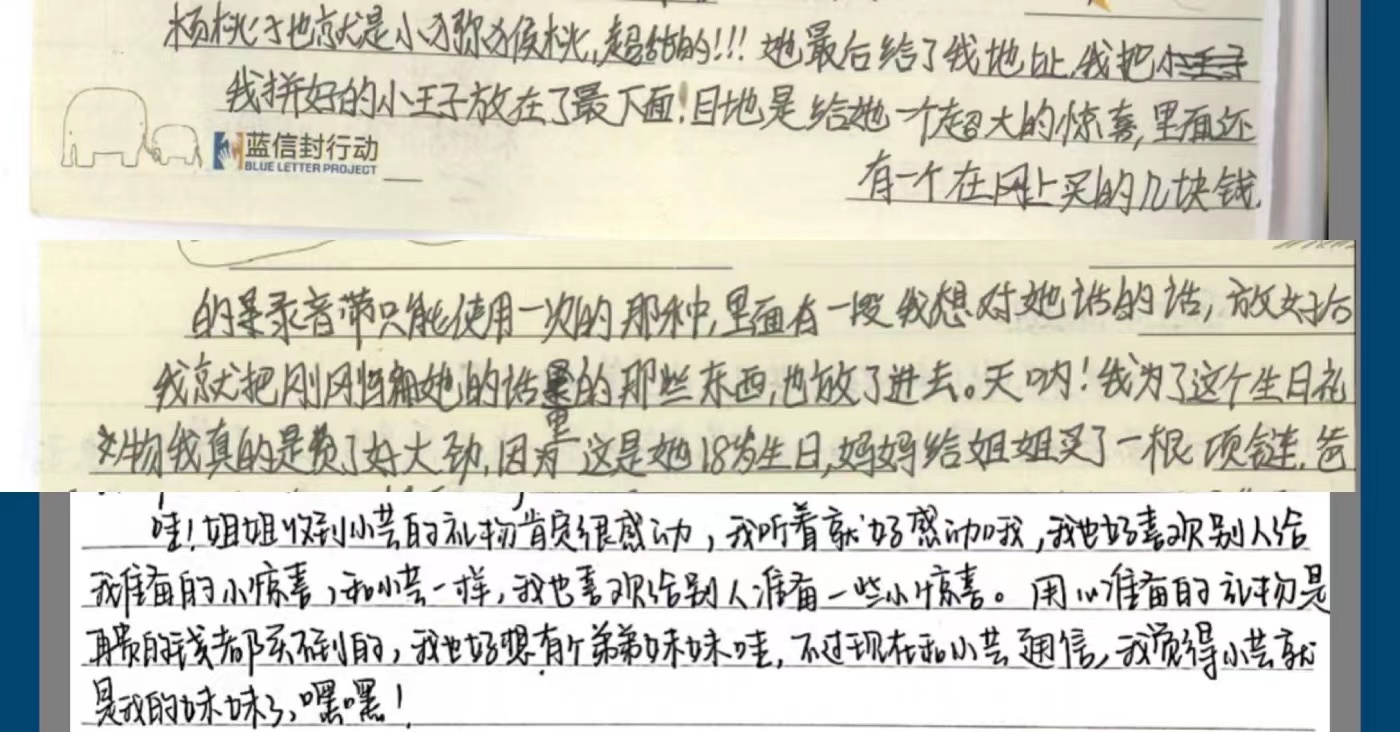 杨桃子也就是小獼猴桃,超甜的!!!她最后给了我地址,我把小王子
我拼好的小王子放在了最下面!目地是给她一个超大的惊喜,里面还
蓝信封行动
BLUE LETTER PROJECT
有一个在网上买的几块钱
的录音带只能使用一次的那种,里面有一段我想对她话的话,放好后
我就把刚刚
她的话
的那些东西,也放了进去。天呐!我为了这个生日礼
物我真的是费了好大劲,因为这是她18岁生日,妈妈给姐姐买了一根项链,爸
哇!姐姐收到小芸的礼物肯定很感动,我听着就好感动哦,我也好喜欢别人给
我准备的小惊喜,和小芸一样,我也喜欢给别人准备一些小惊喜。用心准备的礼物是
再贵的钱都买不到的,我也好想有个弟弟妹妹哇,不过现在和小芸通信,我觉得小芸就
是我的妹妹了,嘿嘿!